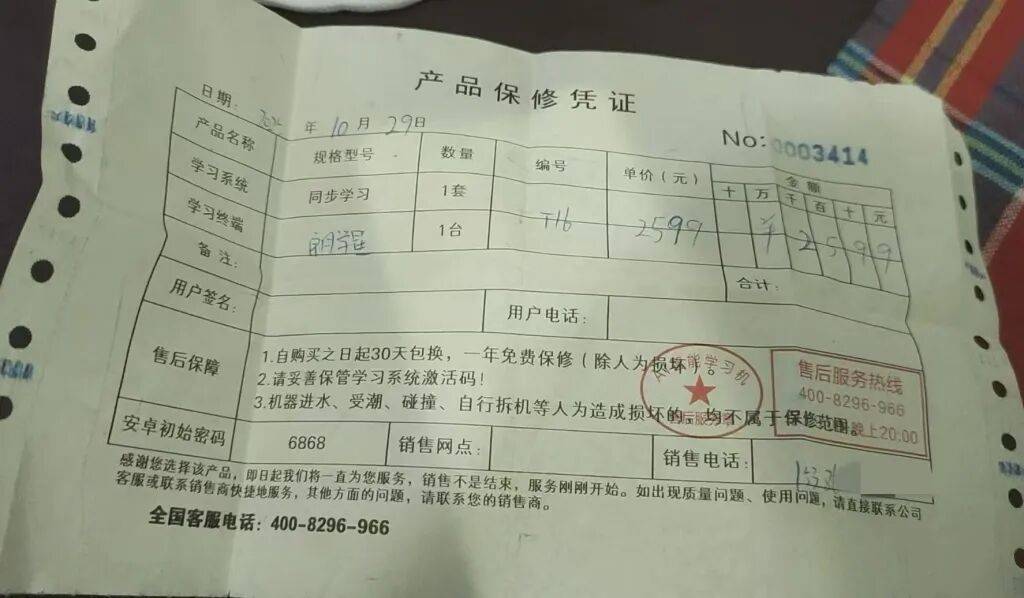 产品保修凭证
日期： 年 10 月 29 日
No: 0003414
产品名称 规格型号 数量 编号 单价（元） 金额
十 万 千 百 十 元
学习系统 同步学习 1套
学习终端 1台 T16 2599 ¥ 2 5 9 9
备注： 合计：
用户签名： 用户电话：
售后保障
1.自购买之日起30天包换，一年免费保修（除人为损坏）。
2.请妥善保管学习系统激活码！
3.机器进水、受潮、碰撞、自行拆机等人为造成损坏的，均不属于保修范围。
能学习机
售后服务热线
400-8296-966
晚上20:00
安卓初始密码 6868 销售网点： 销售电话：
感谢您选择该产品，即日起我们将一直为您服务，销售不是结束，服务刚刚开始。如出现质量问题、使用问题，请直接联系公司
客服或联系销售商快捷地服务，其他方面的问题，请联系您的销售商。
全国客服电话：400-8296-966